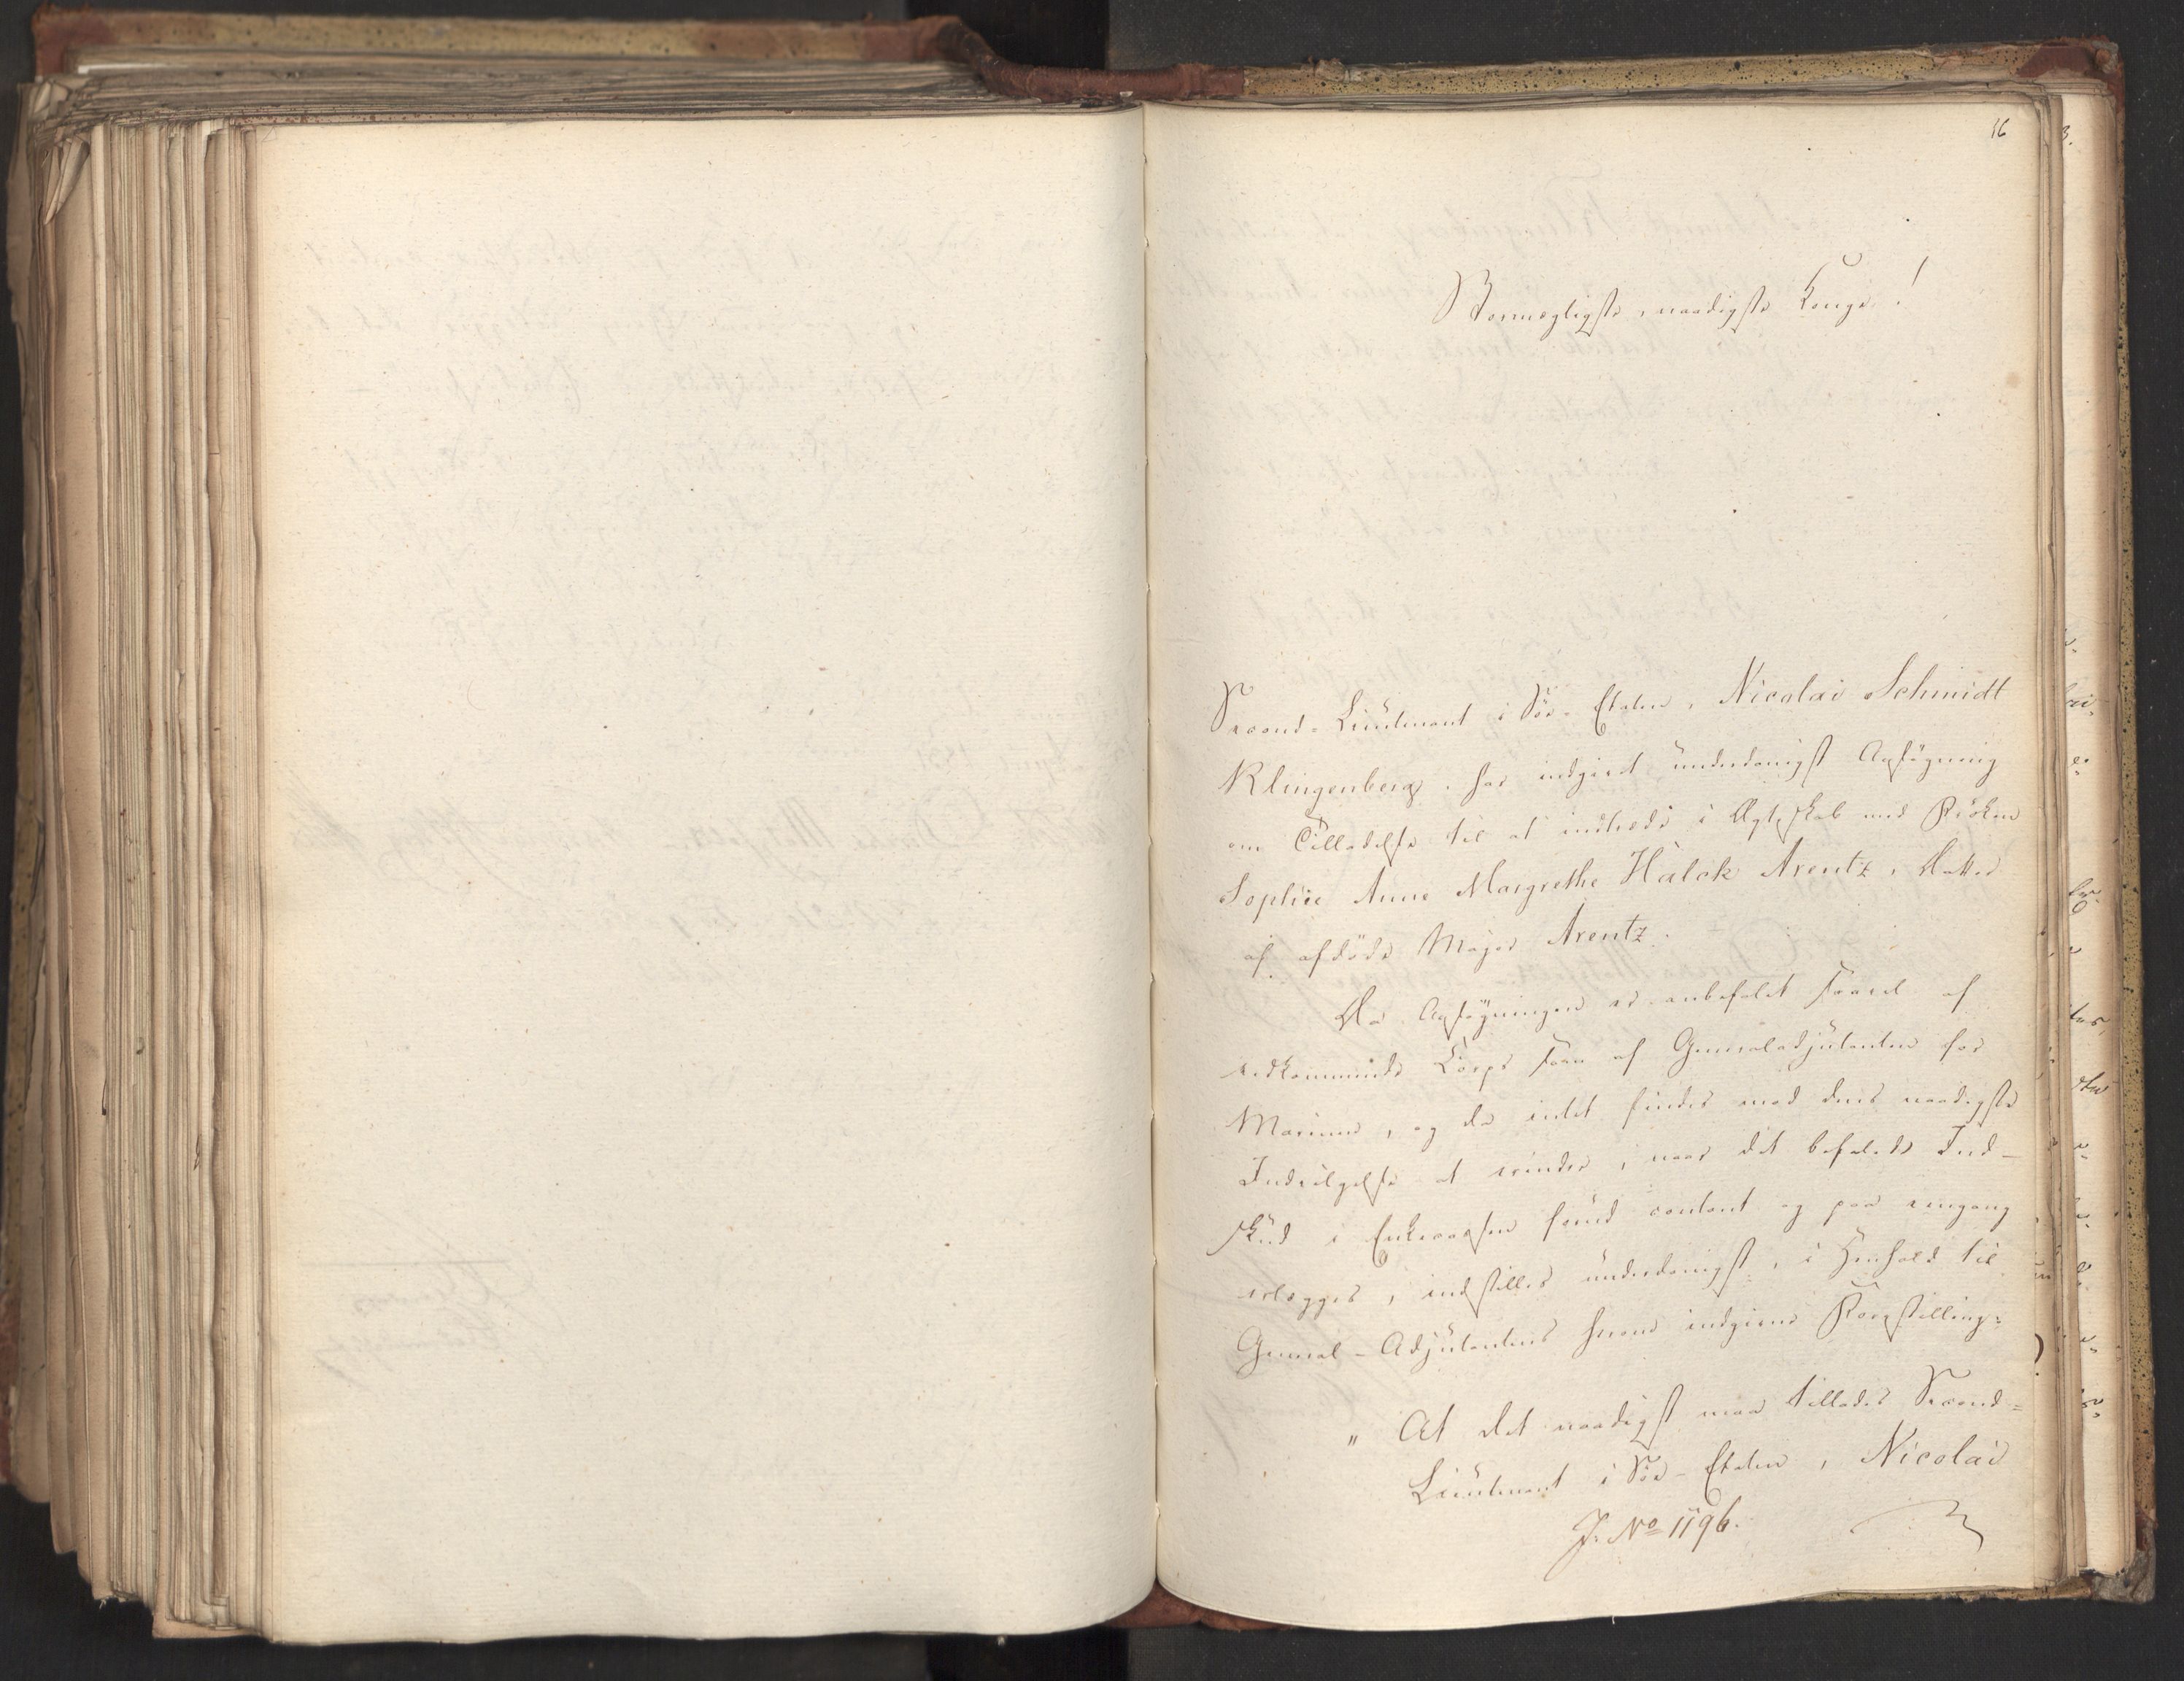 16
Stormægtigste, naadigste Konge!
Second-Lieutenant i Søe-Etaten, Nicolai Schmidt
Klingenberg, har indgivet underdanigst Ansøgning
om Tilladelse til at indtræde i Ægteskab med Frøken
Sophie Anne Margrethe Halck Arentz, Datter
af afdøde Major Arentz.
Da Ansøgningen er anbefalet saavel af
vedkommende Corps som af Generaladjutanten for
Marinen, og da intet findes mod dens naadigste
Indvilgelse at erindre, naar det befalede Ind-
skud i Enkecassen fuld contant og paa eengang
erlægges, indstilles underdanigst, i Henhold til
General-Adjutantens herom indgivne Forestilling:
„At det naadigst maa tillades Second-
Lieutenant i Søe-Etaten, Nicolai
J. No 1196.